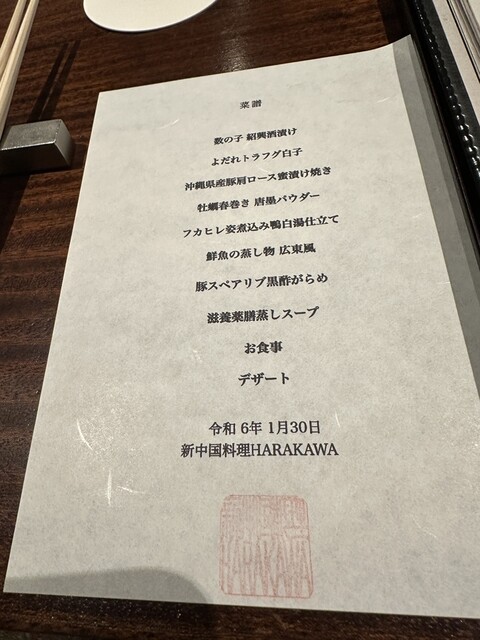 菜譜
数の子 紹興酒漬け
よだれトラフグ白子
沖縄県産豚肩ロース蜜漬け焼き
牡蠣春巻き 唐墨パウダー
フカヒレ姿煮込み鴨白湯仕立て
鮮魚の蒸し物 広東風
豚スペアリブ黒酢がらめ
滋養薬膳蒸しスープ
お食事
デザート
令和 6年 1月30日
新中国料理HARAKAWA